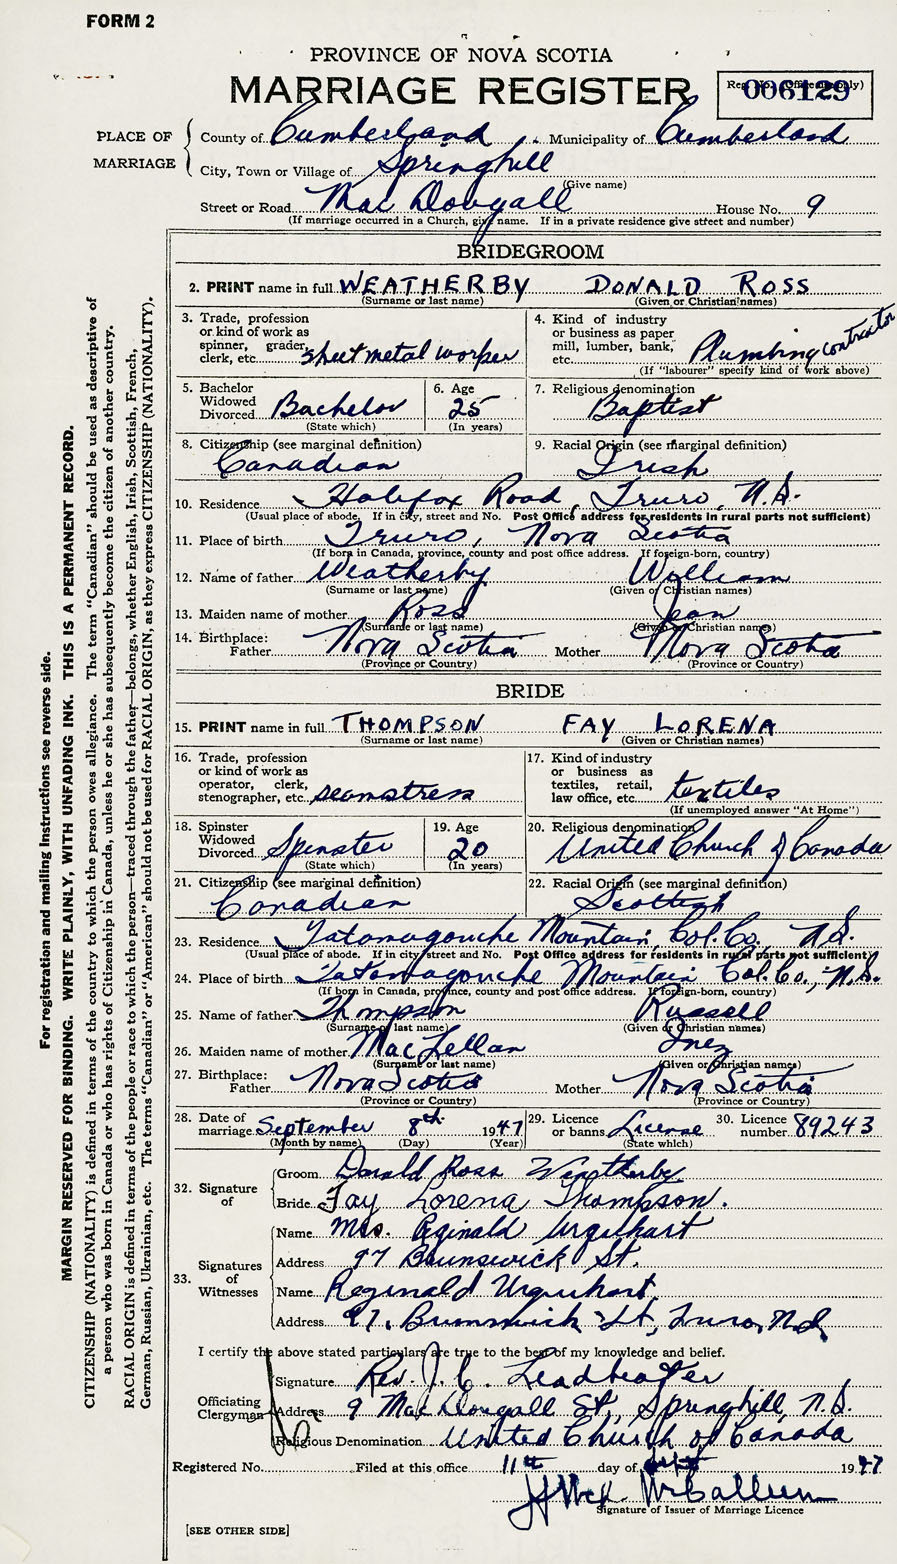 FORM 2
PROVINCE OF NOVA SCOTIA
MARRIAGE REGISTER
Reg. No. (Office use only)
006129
PLACE OF MARRIAGE
County of Cumberland Municipality of Cumberland
City, Town or Village of Springhill
(Give name)
Street or Road Mac Dougall House No. 9
(If marriage occurred in a Church, give name. If in a private residence give street and number)
BRIDEGROOM
2. PRINT name in full WEATHERBY DONALD ROSS
(Surname or last name) (Given or Christian names)
3. Trade, profession or kind of work as spinner, grader, clerk, etc. sheet metal worker
4. Kind of industry or business as paper mill, lumber, bank, etc. Plumbing contractor
(If "labourer" specify kind of work above)
5. Bachelor Widowed Divorced Bachelor
(State which)
6. Age 25
(In years)
7. Religious denomination
Baptist
8. Citizenship (see marginal definition)
Canadian
9. Racial Origin (see marginal definition)
Irish
10. Residence Halifax Road, Truro, N.S.
(Usual place of abode. If in city, street and No. Post Office address for residents in rural parts not sufficient)
11. Place of birth Truro, Nova Scotia
(If born in Canada, province, county and post office address. If foreign-born, country)
12. Name of father Weatherby William
(Surname or last name) (Given or Christian names)
13. Maiden name of mother Ross Jean
(Surname or last name) (Given or Christian names)
14. Birthplace: Father Nova Scotia Mother Nova Scotia
(Province or Country) (Province or Country)
BRIDE
15. PRINT name in full THOMPSON FAY LORENA
(Surname or last name) (Given or Christian names)
16. Trade, profession or kind of work as operator, clerk, stenographer, etc. seamstress
17. Kind of industry or business as textiles, retail, law office, etc. textiles
(If unemployed answer "At Home")
18. Spinster Widowed Divorced Spinster
(State which)
19. Age 20
(In years)
20. Religious denomination
United Church of Canada
21. Citizenship (see marginal definition)
Canadian
22. Racial Origin (see marginal definition)
Scottish
23. Residence Tatamagouche Mountain, Col. Co., N.S.
(Usual place of abode. If in city street and No. Post Office address for residents in rural parts not sufficient)
24. Place of birth Tatamagouche Mountain Col. Co., N.S.
(If born in Canada, province, county and post office address. If foreign-born, country)
25. Name of father Thompson Russell
(Surname or last name) (Given or Christian names)
26. Maiden name of mother MacLellan Inez
(Surname or last name) (Given or Christian names)
27. Birthplace: Father Nova Scotia Mother Nova Scotia
(Province or Country) (Province or Country)
28. Date of marriage September 8th 1947
(Month by name) (Day) (Year)
29. Licence or banns License
(State which)
30. Licence number 89243
32. Signature of
Groom Donald Ross Weatherby
Bride Fay Lorena Thompson.
33. Signatures of Witnesses
Name Mrs. Reginald Urquhart
Address 97 Brunswick St.
Name Reginald Urquhart
Address 97, Brunswick St, Truro, N.S.
I certify the above stated particulars are true to the best of my knowledge and belief.
Officiating Clergyman
Signature Rev. J. C. Leadbeater
Address 9 MacDougall St., Springhill, N.S.
Religious Denomination United Church of Canada
Registered No. Filed at this office 11th day of Sept 1947
McCallum
Signature of Issuer of Marriage Licence
[SEE OTHER SIDE]
For registration and mailing instructions see reverse side.
MARGIN RESERVED FOR BINDING. WRITE PLAINLY, WITH UNFADING INK. THIS IS A PERMANENT RECORD.
CITIZENSHIP (NATIONALITY) is defined in terms of the country to which the person owes allegiance. The term "Canadian" should be used as descriptive of
a person who was born in Canada or who has rights of Citizenship in Canada, unless he or she has subsequently become the citizen of another country.
RACIAL ORIGIN is defined in terms of the people or race to which the person—traced through the father—belongs, whether English, Irish, Scottish, French,
German, Russian, Ukrainian, etc. The terms "Canadian" or "American" should not be used for RACIAL ORIGIN, as they express CITIZENSHIP (NATIONALITY).